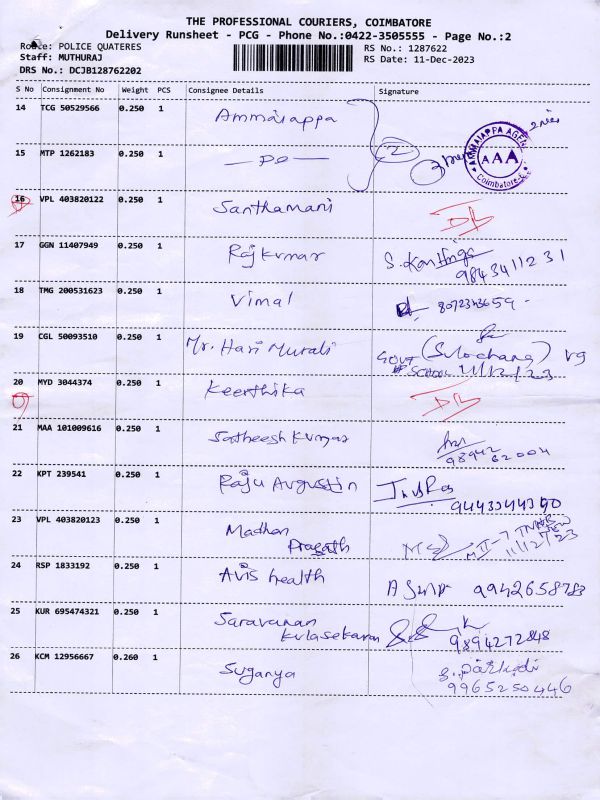 THE PROFESSIONAL COURIERS, COIMBATORE
Delivery Runsheet - PCG - Phone No.:0422-3505555 - Page No.:2
Route: POLICE QUATERES
RS No.: 1287622
Staff: MUTHURAJ
RS Date: 11-Dec-2023
DRS No.: DCJB128762202
S No Consignment No Weight PCS Consignee Details Signature
14 TCG 50529566 0.250 1 Ammaiappa
15 MTP 1262183 0.250 1 — DO — 2
AMMAIAPPA AGEN
AAA
Coimbatore
16 VPL 403820122 0.250 1 Santhamani
17 GGN 11407949 0.250 1 Rajkumar
9843411231
18 TMG 200531623 0.250 1 Vimal
19 CGL 50093510 0.250 1 Mr. Hari Murali (Sulochana)
GOVT SCHOOL 11/12/23
20 MYD 3044374 0.250 1 Keerthika
21 MAA 101009616 0.250 1 Satheesh Kumar
98942 62004
22 KPT 239541 0.250 1 Raju Augustin
9443344390
23 VPL 403820123 0.250 1 Madhan Prasath
11/12/23
24 RSP 1833192 0.250 1 Avis health
9942658783
25 KUR 695474321 0.250 1 Saravanan Kulasekaran
9894272848
26 KCM 12956667 0.260 1 Suganya
9965250446